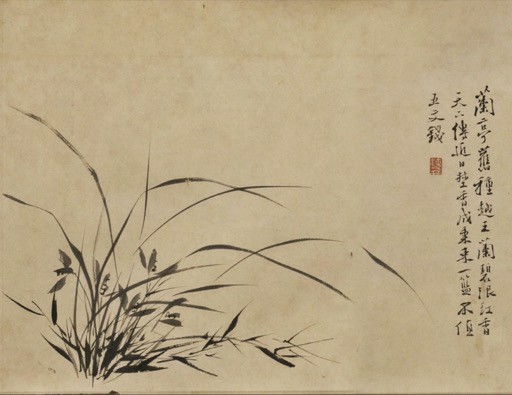 蘭亭舊種越王蘭碧浪紅香
天下傳近日野香成秉束一籃不值
五文錢